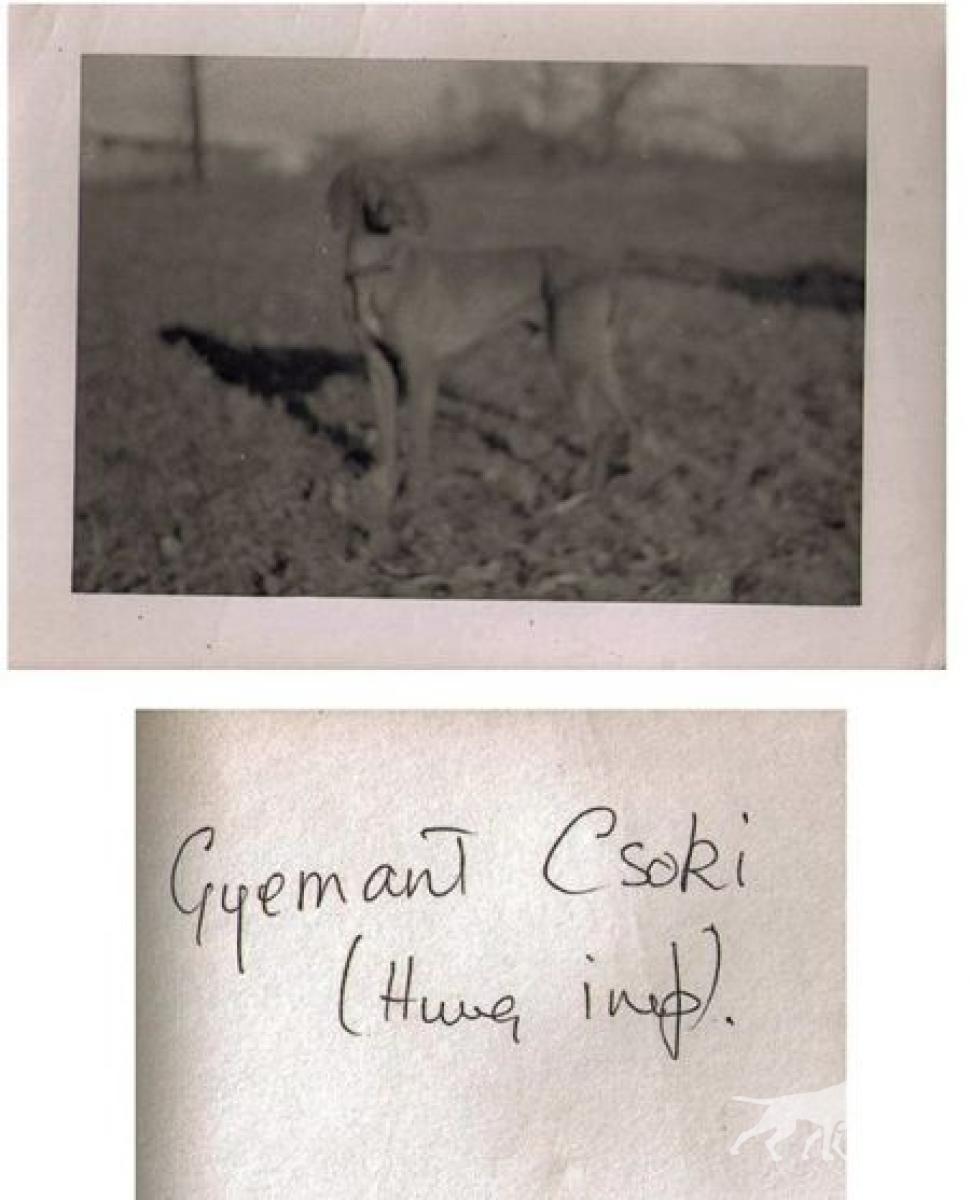 Gyemant Csoki
(Hung imp).